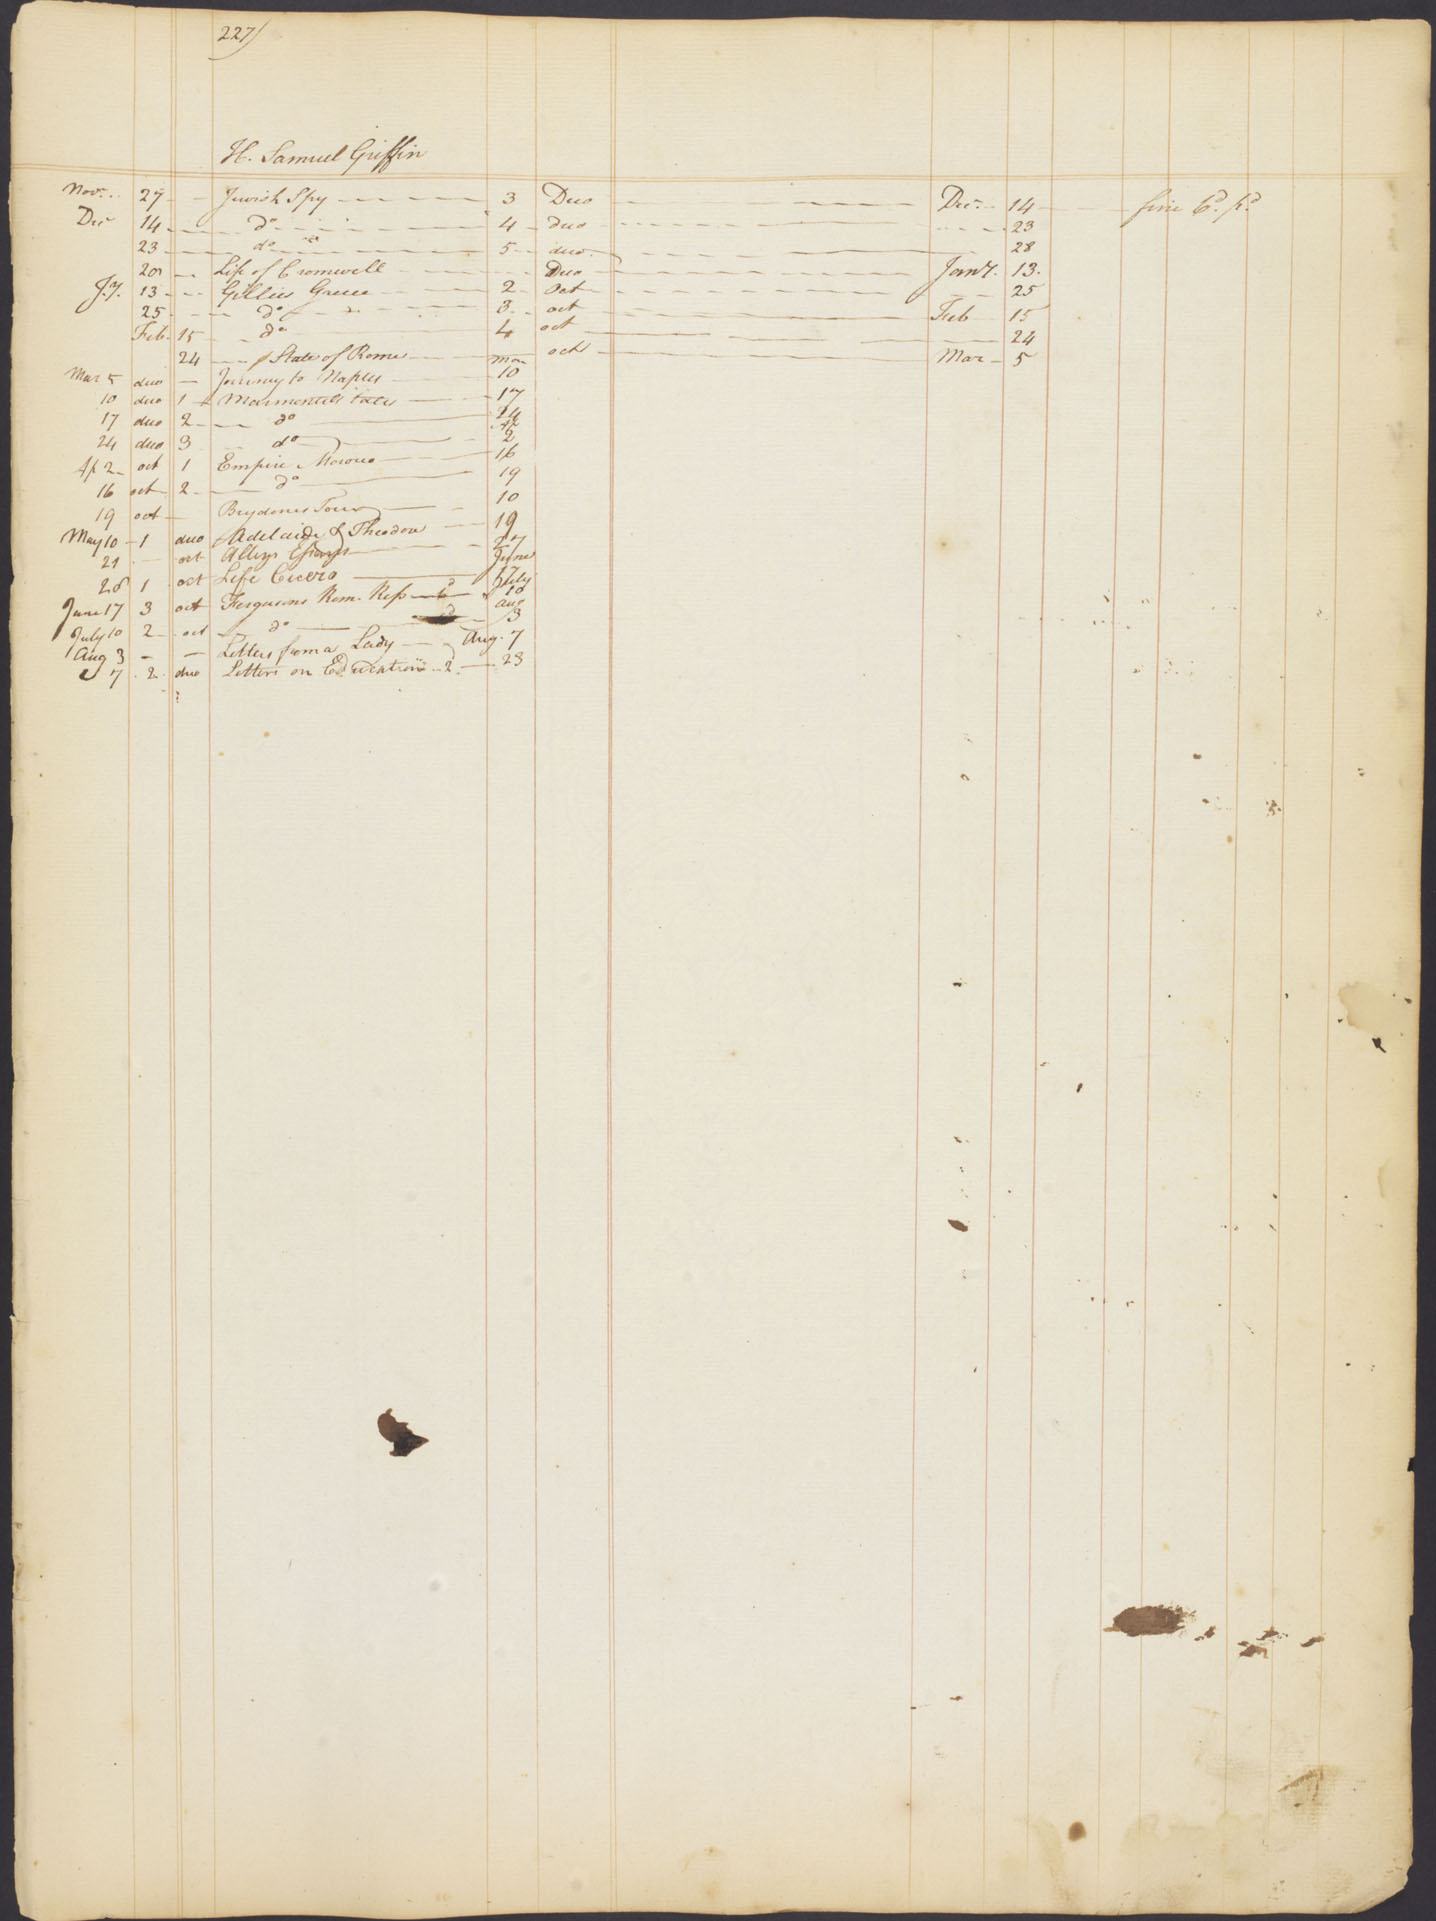 227)
H. Samuel Griffin
Novr. 27 Jewish Spy 3 Duo Decr. 14 fine 6d. pd
Dec 14 do 4 duo 23
23 do 5 duo 28
Life of Cromwell Duo Jany. 13.
Jy. 13 Gillies Greece 2 Oct 25
25 do 3 oct Feb 15
Feb. 15 do 4 oct 24
24 State of Rome oct Mar 5
Mar 5 duo Journey to Naples Mar 10
10 duo 1 Marmontels tales 17
17 duo 2 do 24
24 duo 3 do Ap 2
Ap 2 oct 1 Empire Morocco 16
16 oct 2 do 19
19 oct Brydones Tour 10
May 10 1 duo Adelaide & Theodore 19
21 oct Essays 27
28 1 oct Life Cicero June 17
June 17 3 oct Fergusons Rom. Rep July 10
July 10 2 oct do Aug 3
Aug 3 Letters from a Lady Aug. 7
7 2 duo Letters on Education 2 23